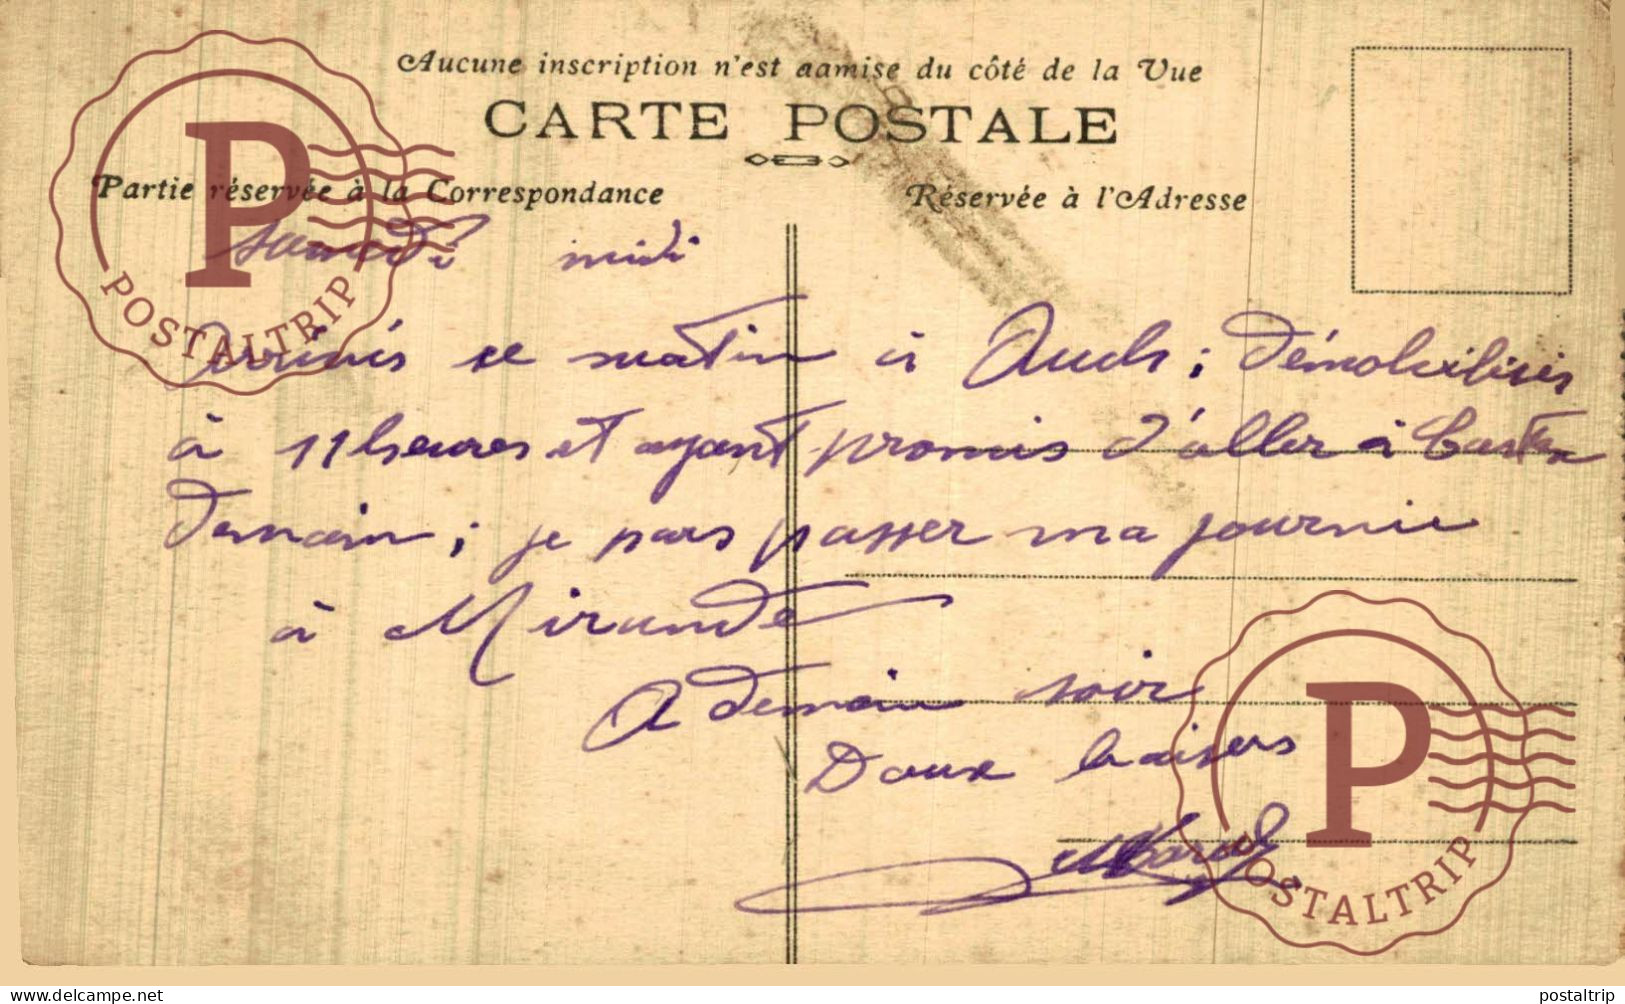 Aucune inscription n'est aamise du côté de la Vue
CARTE POSTALE
Partie réservée à la Correspondance
Réservée à l'Adresse
samedi midi
Arrivés ce matin à Auch ; démobilisés
à 11 heures et ayant promis d'aller à Castex
demain ; je pars passer ma journée
à Mirande
A demain soir
Doux baisers
P
POSTALTRIP
P
POSTALTRIP
www.delcampe.net
postaltrip